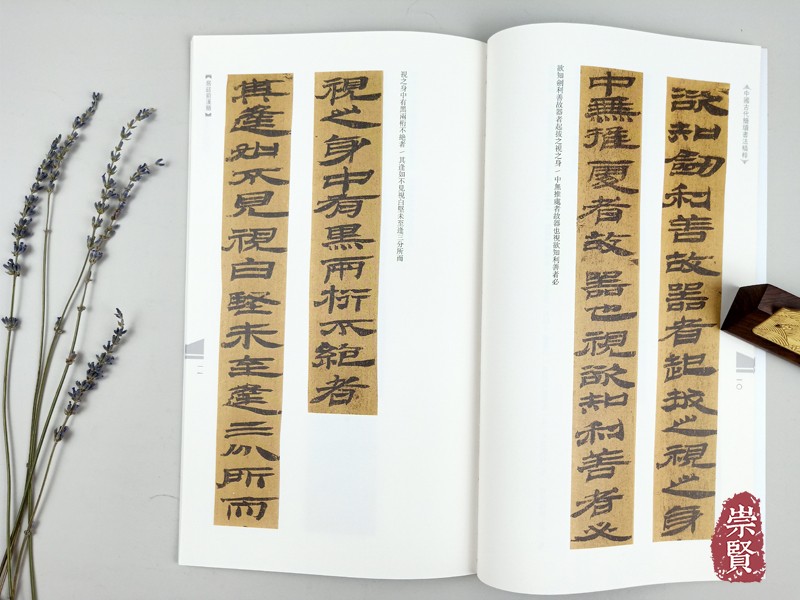 中國古代簡牘書法精粹
一〇
欲知劍利善故器者起拔之視之身
中無推處者故器也視欲知利善者必
欲知劍利善故器者起拔之視之身/中無推處者故器也視欲知利善者必
視之身中有黑兩桁不絕者/其逢如不見視白堅未至逢三分所而
視之身中有黑兩桁不絕者
其逢如不見視白堅未至逢三分所而
一一
崇賢